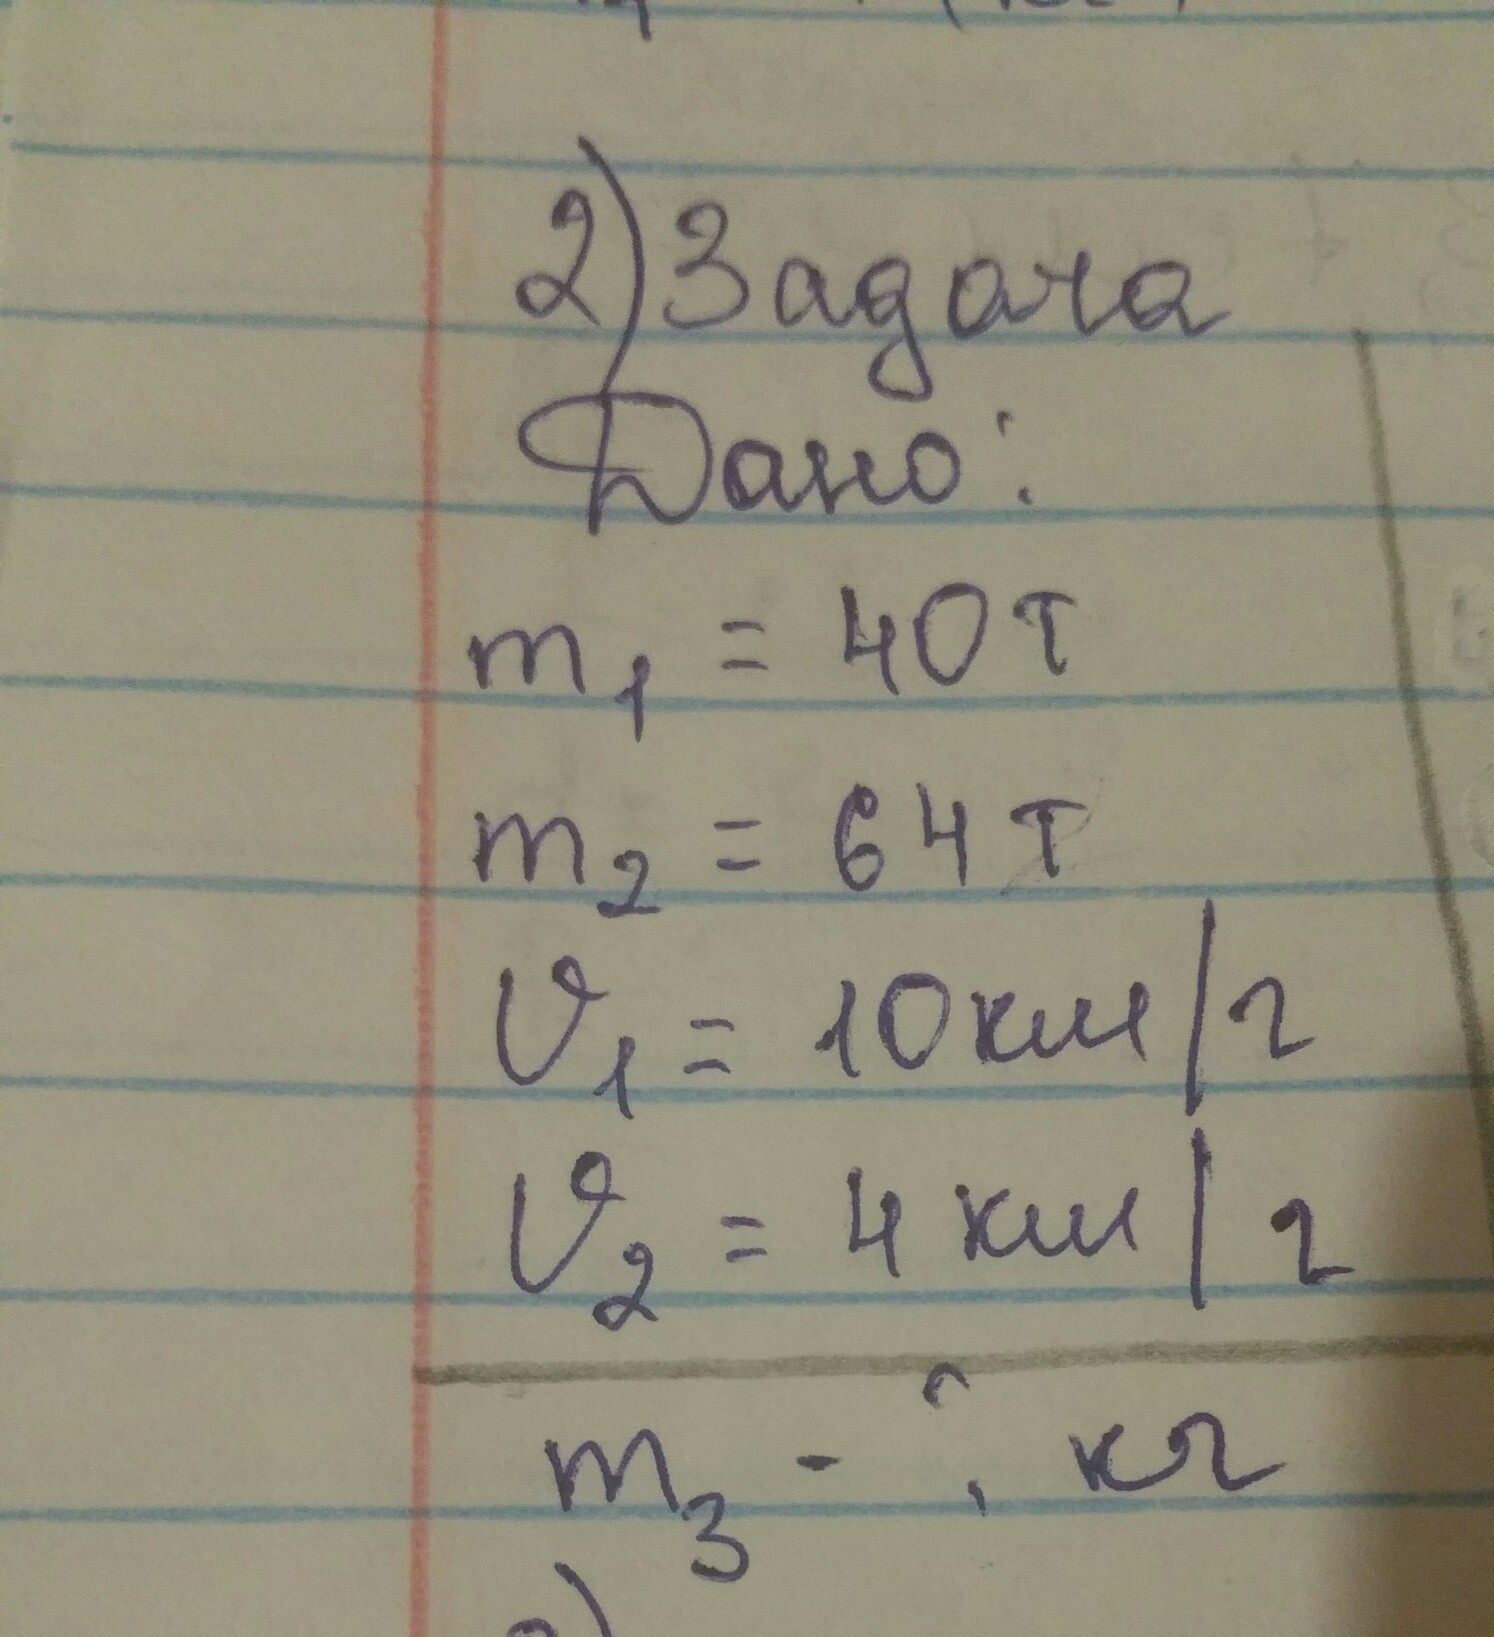 2) Задача
Дано:
m₁ = 40 т
m₂ = 64 т
υ₁ = 10 км/г
υ₂ = 4 км/г
m₃ - ? кг